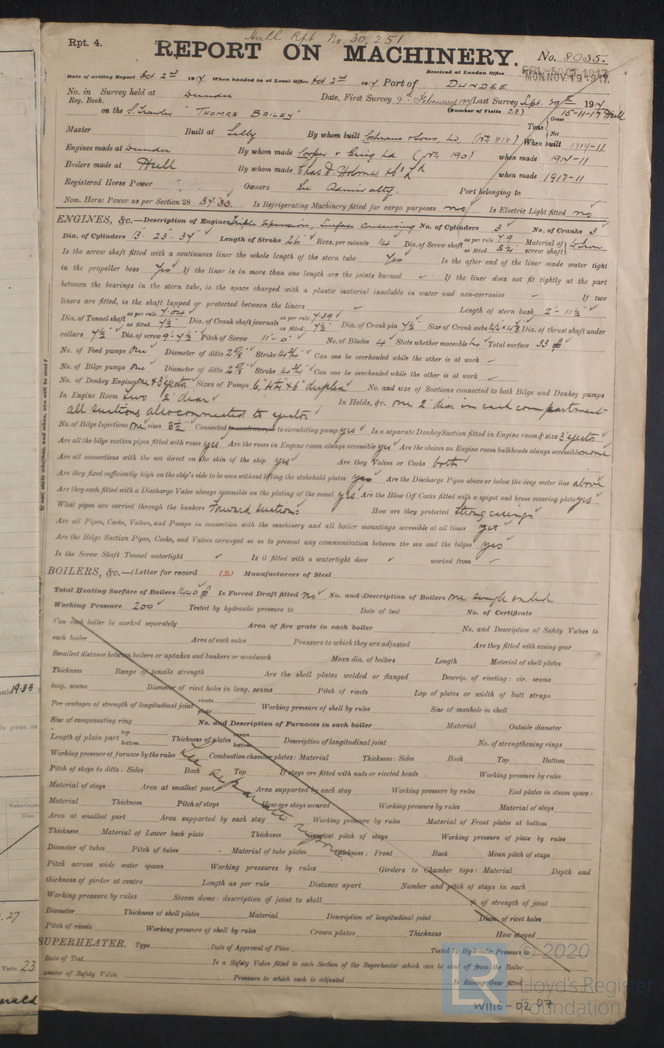 Hull Rpt No. 30,251
Rpt. 4.
REPORT ON MACHINERY. No. 8035.
Received at London Office MON. NOV. 19 1917
Date of writing Report Oct. 2nd 1917 When handed in at Local Office Oct 2nd 1917 Port of DUNDEE
No. in Survey held at Dundee Date, First Survey 9th February 1917 Last Survey Sept. 29th 1917
Reg. Book. (Number of Visits 28) 15-11-17 Hull
on the S. Trawler "THOMAS BAILEY" Tons Gross Net
Master Built at Selby By whom built Cochrane & Sons, Ld. (No 818) When built 1917-11
Engines made at Dundee By whom made Cooper & Greig Ld (No. 190) when made 1917-11
Boilers made at Hull By whom made Chas D. Holmes & Co Ld when made 1917-11
Registered Horse Power Owners The Admiralty. Port belonging to
Nom. Horse Power as per Section 28 84.83. Is Refrigerating Machinery fitted for cargo purposes no Is Electric Light fitted no
ENGINES, &c.—Description of Engines Triple Expansion, Surface Condensing No. of Cylinders 3 No. of Cranks 3
Dia. of Cylinders 13. 23. 37 Length of Stroke 26" Revs. per minute Dia. of Screw shaft as per rule as fitted Material of screw shaft
Is the screw shaft fitted with a continuous liner the whole length of the stern tube Yes Is the after end of the liner made water tight
in the propeller boss yes If the liner is in more than one length are the joints burned – If the liner does not fit tightly at the part
between the bearings in the stern tube, is the space charged with a plastic material insoluble in water and non-corrosive – If two
liners are fitted, is the shaft lapped or protected between the liners – Length of stern bush 2'-11½"
Dia. of Tunnel shaft as per rule 7.04 as fitted 7½ Dia. of Crank shaft journals as per rule 7.39 as fitted 7½ Dia. of Crank pin 7½ Size of Crank webs Dia. of thrust shaft under
collars 7½ Dia. of screw 9'-7½ Pitch of Screw 11'-0" No. of Blades 4 State whether moveable no Total surface 33
No. of Feed pumps one Diameter of ditto Stroke Can one be overhauled while the other is at work –
No. of Bilge pumps one Diameter of ditto Stroke Can one be overhauled while the other is at work –
No. of Donkey Engines one & Ejector Sizes of Pumps duplex No. and size of Suctions connected to both Bilge and Donkey pumps
In Engine Room two 2" diar In Holds, &c. one 2 dia in each compartment
all suctions also connected to ejector
No. of Bilge Injections one sizes 3½ Connected to circulating pump yes Is a separate Donkey Suction fitted in Engine room & size 3" ejector
Are all the bilge suction pipes fitted with roses yes Are the roses in Engine room always accessible yes Are the sluices on Engine room bulkheads always accessible none
Are all connections with the sea direct on the skin of the ship yes Are they Valves or Cocks both
Are they fixed sufficiently high on the ship's side to be seen without lifting the stokehold plates yes Are the Discharge Pipes above or below the deep water line above
Are they each fitted with a Discharge Valve always accessible on the plating of the vessel yes Are the Blow Off Cocks fitted with a spigot and brass covering plate yes
What pipes are carried through the bunkers Forward suctions How are they protected Strong casings
Are all Pipes, Cocks, Valves, and Pumps in connection with the machinery and all boiler mountings accessible at all times yes
Are the Bilge Suction Pipes, Cocks, and Valves arranged so as to prevent any communication between the sea and the bilges yes
Is the Screw Shaft Tunnel watertight Is it fitted with a watertight door worked from –
BOILERS, &c.—(Letter for record (S) Manufacturers of Steel
Total Heating Surface of Boilers 1440 Is Forced Draft fitted no No. and Description of Boilers one single ended
Working Pressure 200 Tested by hydraulic pressure to Date of test No. of Certificate
Can each boiler be worked separately Area of fire grate in each boiler No. and Description of Safety Valves to
each boiler Area of each valve Pressure to which they are adjusted Are they fitted with easing gear
Smallest distance between boilers or uptakes and bunkers or woodwork Mean dia. of boilers Length Material of shell plates
Thickness Range of tensile strength Are the shell plates welded or flanged Descrip. of riveting: cir. seams
long. seams Diameter of rivet holes in long. seams Pitch of rivets Lap of plates or width of butt straps
Per centages of strength of longitudinal joint rivets plate Working pressure of shell by rules Size of manhole in shell
Size of compensating ring No. and Description of Furnaces in each boiler Material Outside diameter
Length of plain part top bottom Thickness of plates crown bottom Description of longitudinal joint No. of strengthening rings
Working pressure of furnace by the rules Combustion chamber plates: Material Thickness: Sides Back Top Bottom
Pitch of stays to ditto: Sides Back Top If stays are fitted with nuts or riveted heads Working pressure by rules
See separate report
Material of stays Area at smallest part Area supported by each stay Working pressure by rules End plates in steam space:
Material Thickness Pitch of stays How are stays secured Working pressure by rules Material of stays
Area at smallest part Area supported by each stay Working pressure by rules Material of Front plates at bottom
Thickness Material of Lower back plate Thickness Greatest pitch of stays Working pressure of plate by rules
Diameter of tubes Pitch of tubes Material of tube plates Thickness: Front Back Mean pitch of stays
Pitch across wide water spaces Working pressures by rules Girders to Chamber tops: Material Depth and
thickness of girder at centre Length as per rule Distance apart Number and pitch of stays in each
Working pressure by rules Steam dome: description of joint to shell % of strength of joint
Diameter Thickness of shell plates Material Description of longitudinal joint Diam. of rivet holes
Pitch of rivets Working pressure of shell by rules Crown plates Thickness How stayed
SUPERHEATER. Type Date of Approval of Plan Tested by Hydraulic Pressure to
Date of Test Is a Safety Valve fitted to each Section of the Superheater which can be shut off from the Boiler
Diameter of Safety Valve Pressure to which each is adjusted Is Easing Gear fitted
© 2020
Lloyd's Register
Foundation
W1116-0207